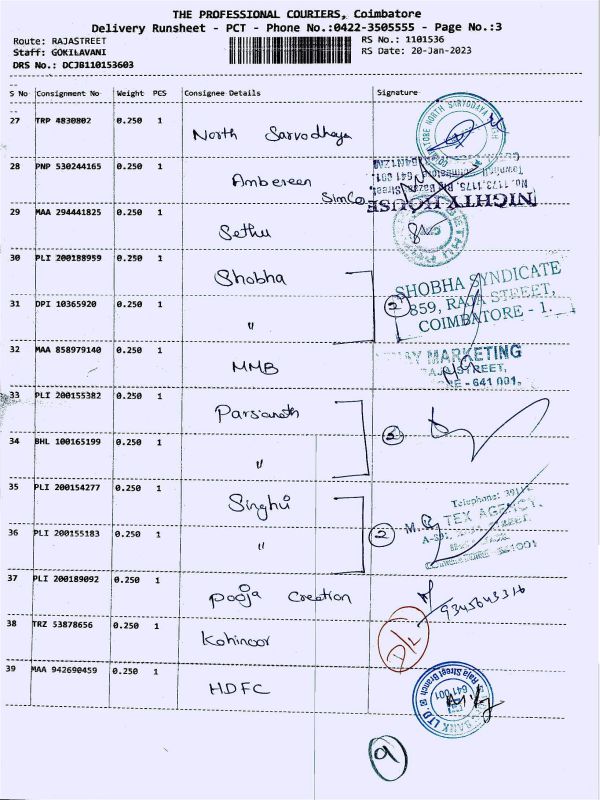 THE PROFESSIONAL COURIERS, Coimbatore
Delivery Runsheet - PCT - Phone No.:0422-3505555 - Page No.:3
Route: RAJASTREET RS No.: 1101536
Staff: GOKILAVANI RS Date: 20-Jan-2023
DRS No.: DCJB110153603
S No Consignment No Weight PCS Consignee Details Signature
27 TRP 4830802 0.250 1 North Sarvodhaya
28 PNP 530244165 0.250 1 Ambereen
SimCo
NIGHTY HOUSE
No. 1173-1175, Big Bazaar Street,
Townhall, Coimbatore - 641 001.
29 MAA 294441825 0.250 1 Sethu
30 PLI 200188959 0.250 1 Shobha
SHOBHA SYNDICATE
859, RAJA STREET,
COIMBATORE - 1.
31 DPI 10365920 0.250 1 "
2
32 MAA 858979140 0.250 1 MMB
MARKETING
STREET,
641 001.
33 PLI 200155382 0.250 1 Parsianath
34 BHL 100165199 0.250 1 "
35 PLI 200154277 0.250 1 Singhvi
Telephone: 3911
TEX AGENCY,
36 PLI 200155183 0.250 1 " 2
37 PLI 200189092 0.250 1 Pooja Creation
9345643316
38 TRZ 53878656 0.250 1 Kohinoor D/L
39 MAA 942690459 0.250 1 HDFC
BANK LTD. Raja Street Branch
641 001
9